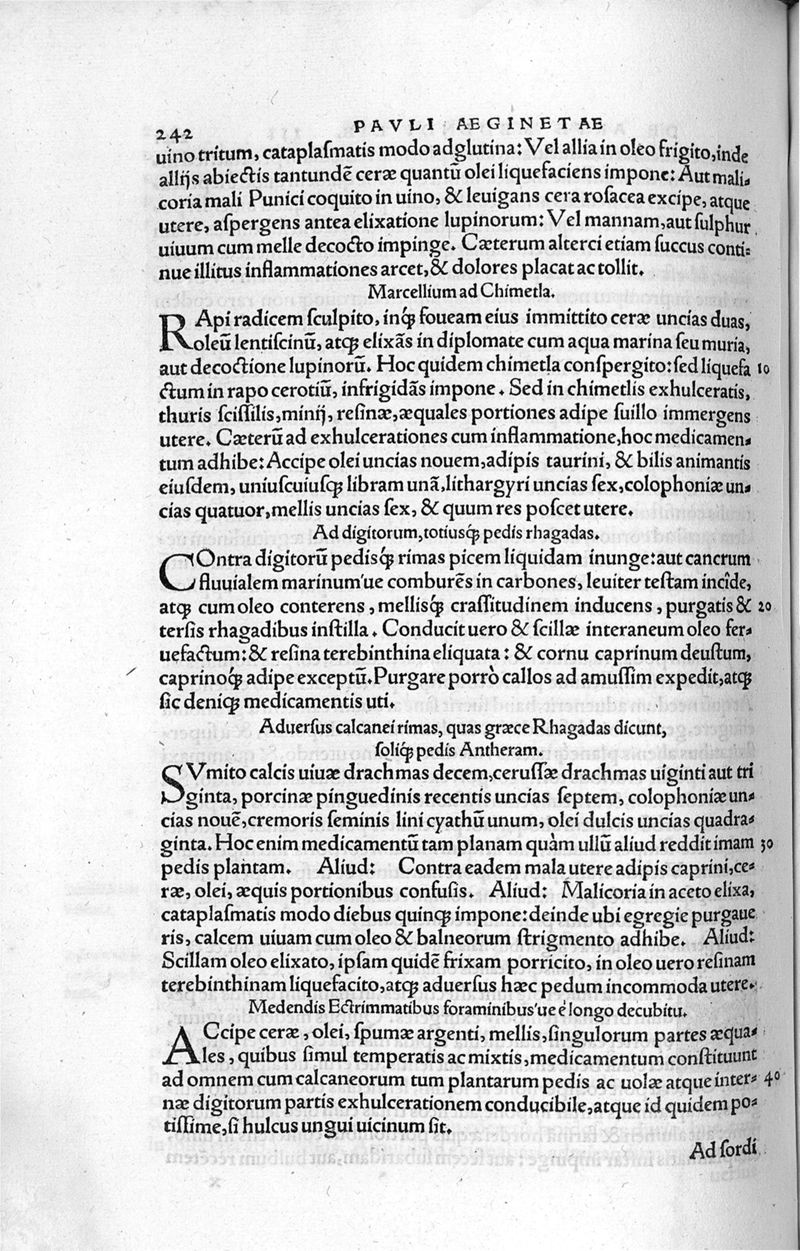 242 PAVLI AEGINETAE
uino tritum, cataplaſmatis modo adglutina: Vel allia in oleo frigito, inde
allijs abiectis tantundē ceræ quantū olei liquefaciens impone: Aut mali⸗
coria mali Punici coquito in uino, & leuigans cera roſacea excipe, atque
utere, aſpergens antea elixatione lupinorum: Vel mannam, aut ſulphur
uiuum cum melle decocto impinge. Cæterum alterci etiam ſuccus conti⸗
nue illitus inflammationes arcet, & dolores placat ac tollit.
Marcellium ad Chimetla.
RApi radicem ſculpito, inq́ꝫ foueam eius immittito ceræ uncias duas,
oleū lentiſcinū, atqꝫ elixās in diplomate cum aqua marina ſeu muria,
aut decoctione lupinorū. Hoc quidem chimetla conſpergito: ſed liquefa 10
ctum in rapo cerotiū, infrigidās impone. Sed in chimetlis exhulceratis,
thuris ſciſſilis, minij, reſinæ, æquales portiones adipe ſuillo immergens
utere. Cæterū ad exhulcerationes cum inflammatione, hoc medicamen⸗
tum adhibe: Accipe olei uncias nouem, adipis taurini, & bilis animantis
eiuſdem, uniuſcuiuſqꝫ libram unā, lithargyri uncias ſex, colophoniæ un⸗
cias quatuor, mellis uncias ſex, & quum res poſcet utere.
Ad digitorum, totiusq́ꝫ pedis rhagadas.
COntra digitorū pedisq́ꝫ rimas picem liquidam inunge: aut cancrum
fluuialem marinum'ue comburēs in carbones, leuiter teſtam incîde,
atqꝫ cum oleo conterens, mellisq́ꝫ craſſitudinem inducens, purgatis & 20
terſis rhagadibus inſtilla. Conducit uero & ſcillæ interaneum oleo fer⸗
uefactum: & reſina terebinthina eliquata: & cornu caprinum deuſtum,
caprinoq́ꝫ adipe exceptū. Purgare porrò callos ad amuſſim expedit, atqꝫ
ſic deniqꝫ medicamentis uti.
Aduerſus calcanei rimas, quas græce Rhagadas dicunt,
ſoliq́ꝫ pedis Antheram.
SVmito calcis uiuæ drachmas decem, ceruſſæ drachmas uiginti aut tri
ginta, porcinæ pinguedinis recentis uncias ſeptem, colophoniæ un⸗
cias nouē, cremoris ſeminis lini cyathū unum, olei dulcis uncias quadra⸗
ginta. Hoc enim medicamentū tam planam quàm ullū aliud reddit imam 30
pedis plantam. Aliud: Contra eadem mala utere adipis caprini, ce⸗
ræ, olei, æquis portionibus confuſis. Aliud: Malicoria in aceto elixa,
cataplaſmatis modo diebus quinqꝫ impone: deinde ubi egregie purgaue
ris, calcem uiuam cum oleo & balneorum ſtrigmento adhibe. Aliud:
Scillam oleo elixato, ipſam quidē frixam porricito, in oleo uero reſinam
terebinthinam liquefacito, atqꝫ aduerſus hæc pedum incommoda utere.
Medendis Ectrimmatibus foraminibus'ue è longo decubitu.
ACcipe ceræ, olei, ſpumæ argenti, mellis, ſingulorum partes æqua⸗
les, quibus ſimul temperatis ac mixtis, medicamentum conſtituunt
ad omnem cum calcaneorum tum plantarum pedis ac uolæ atque inter⸗ 40
næ digitorum partis exhulcerationem conducibile, atque id quidem po⸗
tiſſime, ſi hulcus ungui uicinum ſit.
Ad ſordi